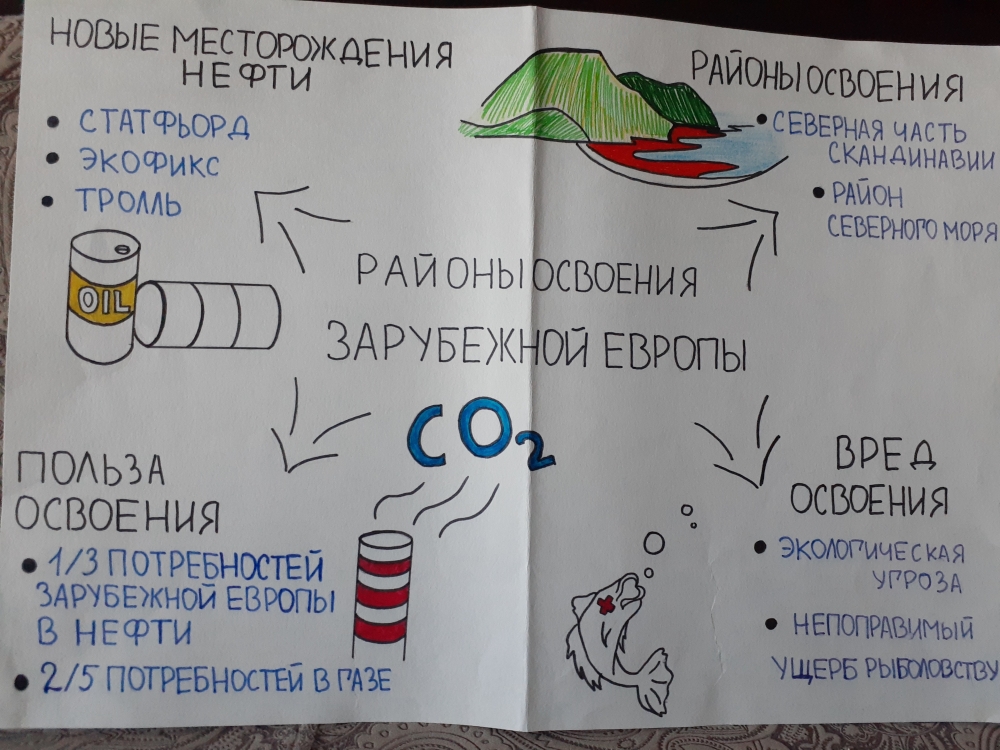 НОВЫЕ МЕСТОРОЖДЕНИЯ
НЕФТИ
• СТАТФЬОРД
• ЭКОФИКС
• ТРОЛЛЬ
OIL
РАЙОНЫ ОСВОЕНИЯ
• СЕВЕРНАЯ ЧАСТЬ
СКАНДИНАВИИ
• РАЙОН
СЕВЕРНОГО МОРЯ
РАЙОНЫ ОСВОЕНИЯ
ЗАРУБЕЖНОЙ ЕВРОПЫ
CO2
ПОЛЬЗА
ОСВОЕНИЯ
• 1/3 ПОТРЕБНОСТЕЙ
ЗАРУБЕЖНОЙ ЕВРОПЫ
В НЕФТИ
• 2/5 ПОТРЕБНОСТЕЙ В ГАЗЕ
ВРЕД
ОСВОЕНИЯ
• ЭКОЛОГИЧЕСКАЯ
УГРОЗА
• НЕПОПРАВИМЫЙ
УЩЕРБ РЫБОЛОВСТВУ